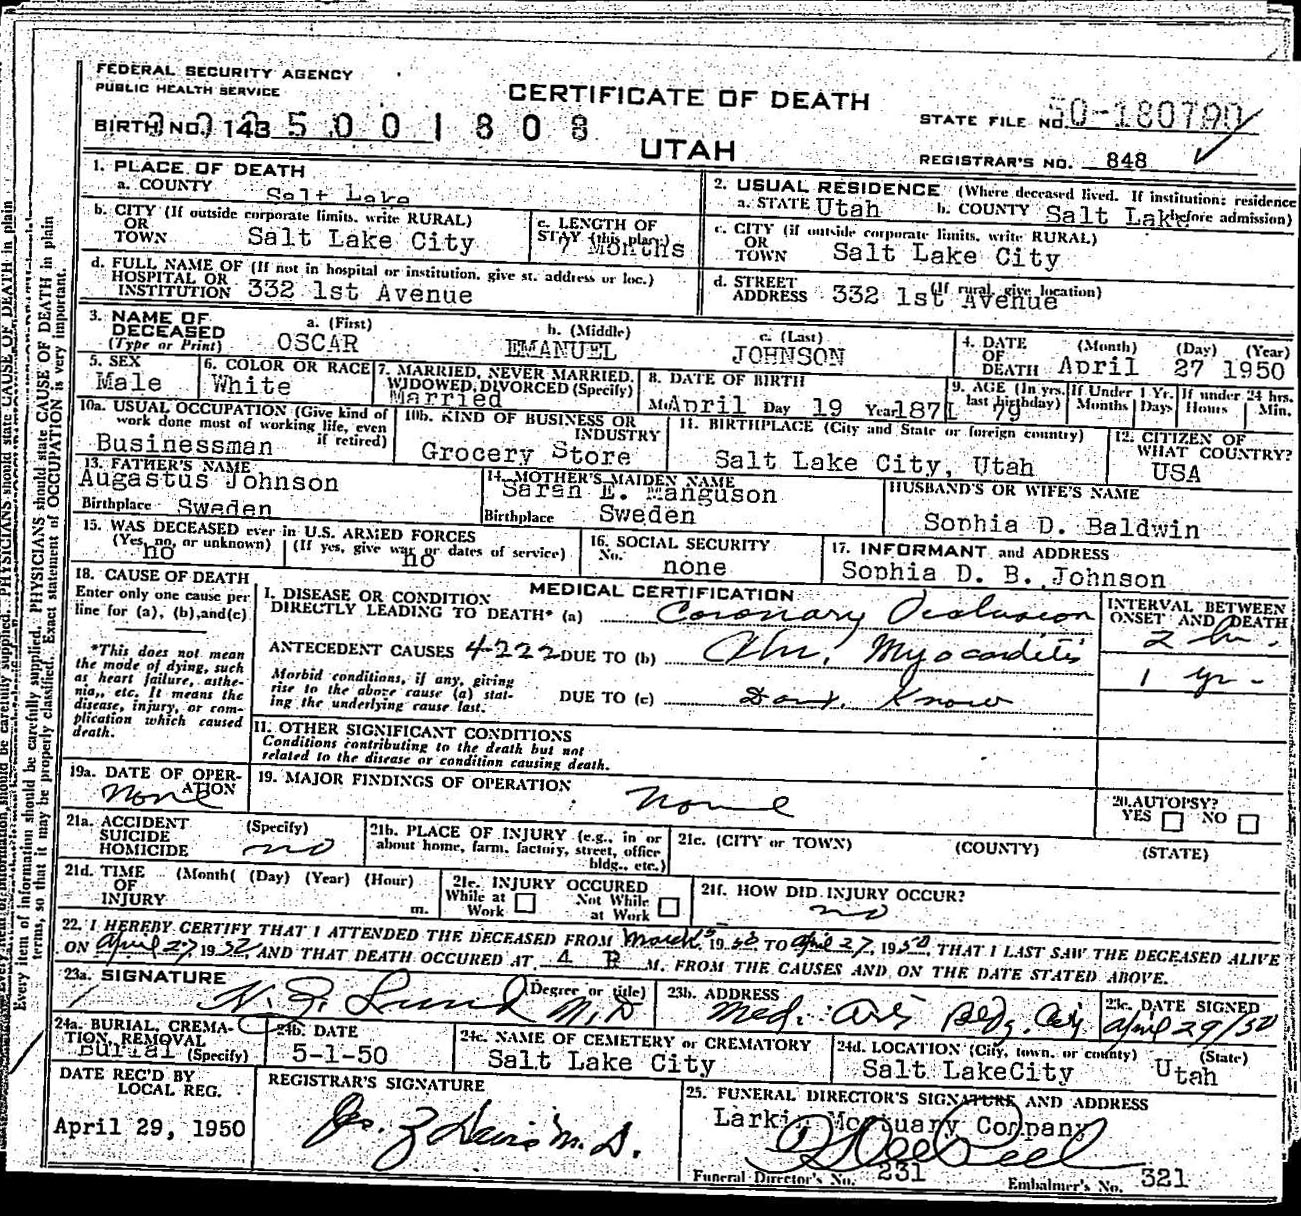 FEDERAL SECURITY AGENCY
PUBLIC HEALTH SERVICE
CERTIFICATE OF DEATH
UTAH
BIRTH NO. 143 5001808
STATE FILE NO. 50-180790
REGISTRAR'S NO. 848
1. PLACE OF DEATH
a. COUNTY Salt Lake
b. CITY (If outside corporate limits, write RURAL)
OR
TOWN Salt Lake City
c. LENGTH OF
STAY (this place) 7 Months
d. FULL NAME OF (If not in hospital or institution, give st. address or loc.)
HOSPITAL OR
INSTITUTION 332 1st Avenue
2. USUAL RESIDENCE (Where deceased lived. If institution: residence
before admission)
a. STATE Utah b. COUNTY Salt Lake
c. CITY (if outside corporate limits, write RURAL)
OR
TOWN Salt Lake City
d. STREET (If rural, give location)
ADDRESS 332 1st Avenue
3. NAME OF
DECEASED
(Type or Print)
a. (First) OSCAR
b. (Middle) EMANUEL
c. (Last) JOHNSON
4. DATE (Month) (Day) (Year)
OF
DEATH April 27 1950
5. SEX
Male
6. COLOR OR RACE
White
7. MARRIED, NEVER MARRIED,
WIDOWED, DIVORCED (Specify)
Married
8. DATE OF BIRTH
Mo. April Day 19 Year 1871
9. AGE (In yrs. last birthday) 79
If Under 1 Yr. Months Days
If under 24 hrs. Hours Min.
10a. USUAL OCCUPATION (Give kind of
work done most of working life, even
if retired)
Businessman
10b. KIND OF BUSINESS OR
INDUSTRY
Grocery Store
11. BIRTHPLACE (City and State or foreign country)
Salt Lake City, Utah
12. CITIZEN OF
WHAT COUNTRY?
USA
13. FATHER'S NAME
Augastus Johnson
Birthplace Sweden
14. MOTHER'S MAIDEN NAME
Sarah E. Manguson
Birthplace Sweden
HUSBAND'S OR WIFE'S NAME
Sophia D. Baldwin
15. WAS DECEASED ever in U.S. ARMED FORCES
(Yes, no, or unknown) (If yes, give war or dates of service)
no no
16. SOCIAL SECURITY
No. none
17. INFORMANT and ADDRESS
Sophia D. B. Johnson
18. CAUSE OF DEATH
Enter only one cause per
line for (a), (b), and (c)
*This does not mean
the mode of dying, such
as heart failure, asthe-
nia, etc. It means the
disease, injury, or com-
plication which caused
death.
MEDICAL CERTIFICATION
I. DISEASE OR CONDITION
DIRECTLY LEADING TO DEATH* (a) Coronary Occlusion
ANTECEDENT CAUSES 4-222 DUE TO (b) Chr. Myocarditis
Morbid conditions, if any, giving
rise to the above cause (a) stat-
ing the underlying cause last.
DUE TO (c) Dont Know
INTERVAL BETWEEN
ONSET AND DEATH
2 hr.
1 yr.
11. OTHER SIGNIFICANT CONDITIONS
Conditions contributing to the death but not
related to the disease or condition causing death.
19a. DATE OF OPER-
ATION
None
19. MAJOR FINDINGS OF OPERATION
None
20. AUTOPSY?
YES NO
21a. ACCIDENT (Specify)
SUICIDE
HOMICIDE no
21b. PLACE OF INJURY (e.g., in or
about home, farm, factory, street, office
bldg., etc.)
21c. (CITY or TOWN) (COUNTY) (STATE)
21d. TIME (Month( (Day) (Year) (Hour)
OF
INJURY m.
21e. INJURY OCCURED
While at Work Not While at Work
21f. HOW DID INJURY OCCUR?
no
22. I HEREBY CERTIFY THAT I ATTENDED THE DECEASED FROM March 1950 TO April 27, 1950, THAT I LAST SAW THE DECEASED ALIVE
ON April 27, 1950, AND THAT DEATH OCCURED AT 4 P M. FROM THE CAUSES AND ON THE DATE STATED ABOVE.
23a. SIGNATURE (Degree or title)
Lund M.D
23b. ADDRESS
Med. Arts Bldg. City
23c. DATE SIGNED
April 29/50
24a. BURIAL, CREMA-
TION, REMOVAL
Burial (Specify)
24b. DATE
5-1-50
24c. NAME OF CEMETERY or CREMATORY
Salt Lake City
24d. LOCATION (City, town, or county) (State)
Salt LakeCity Utah
DATE REC'D BY
LOCAL REG.
April 29, 1950
REGISTRAR'S SIGNATURE
M.D.
25. FUNERAL DIRECTOR'S SIGNATURE AND ADDRESS
Larkin Mortuary Company
Funeral Director's No. 231
Embalmer's No. 321
Every item of information should be carefully supplied. PHYSICIANS should state CAUSE OF DEATH in plain
terms, so that it may be properly classified. Exact statement of OCCUPATION is very important.